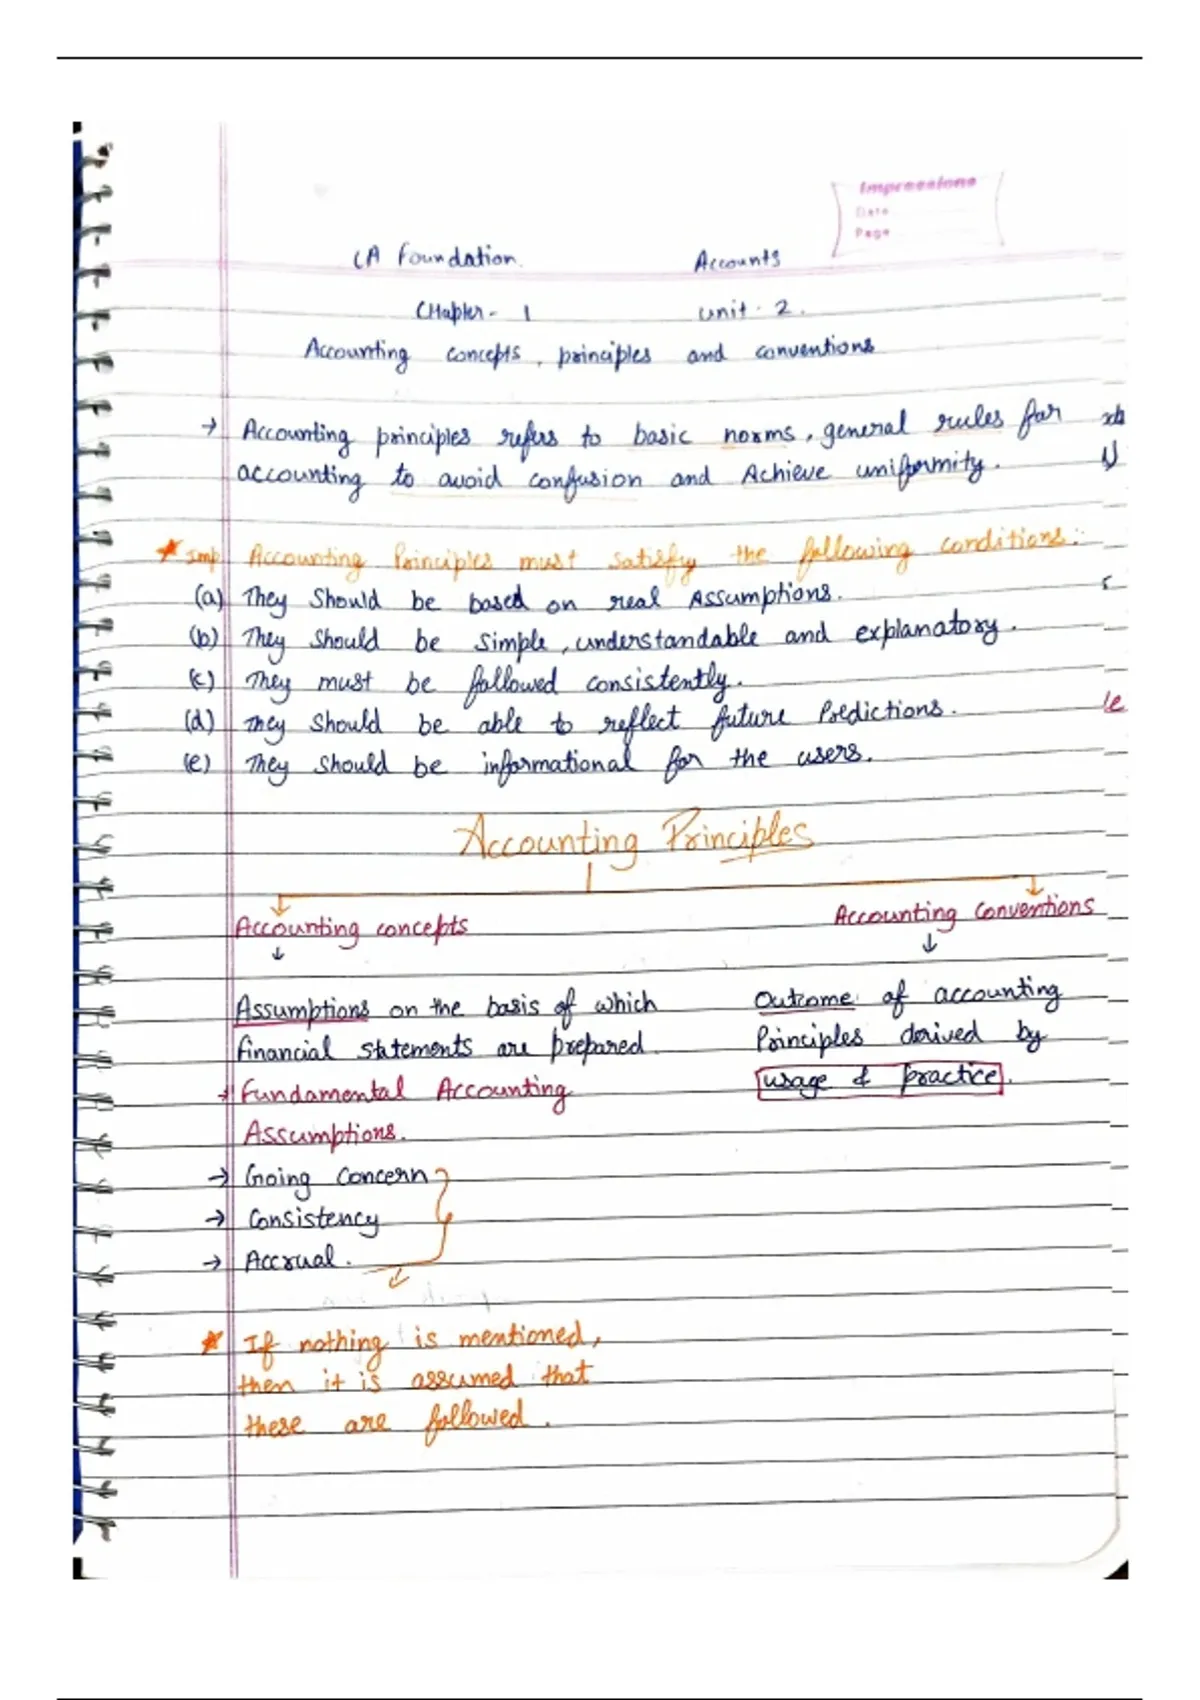 Impressions
Date
Page
CA Foundation. Accounts
CHapter - 1 unit - 2.
Accounting concepts, principles and conventions
→ Accounting principles refers to basic norms, general rules for
accounting to avoid confusion and Achieve uniformity.
★ Imp Accounting Principles must satisfy the following conditions:-
(a) They Should be based on real Assumptions.
(b) They Should be simple, understandable and explanatory.
(c) They must be followed consistently.
(d) They should be able to reflect future Predictions.
(e) They should be informational for the users.
Accounting Principles
Accounting concepts
Accounting Conventions
Assumptions on the basis of which
financial statements are prepared.
Outcome of accounting
Principles derived by
usage & practice.
Fundamental Accounting
Assumptions.
→ Going Concern
→ Consistency
→ Accrual.
★ If nothing is mentioned,
then it is assumed that
these are followed.